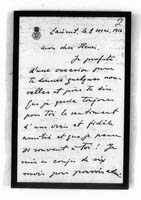 2
le 2 mai, 1916
mon cher Henri,
Je profite
d'une occasion pour
te donner quelques nou-
velles et pour te dire
que je garde toujours
pour toi le sentiment
d'une vraie et fidèle
amitié et que je pense
souvent à toi! Je
suis en congé de six
mois